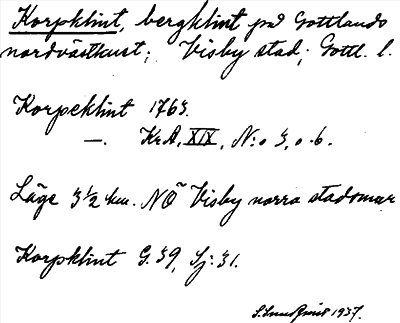 Korpklint, bergklint på Gottlands
nordvästkust; Visby stad; Gottl. l.
Korpeklint 1763.
—. KrA, XIX, N:o 3, o. 6.
Läge 3 1/2 km. NÖ Visby norra stadsmur
Korpklint G. 39, Sj: 31.
1937.